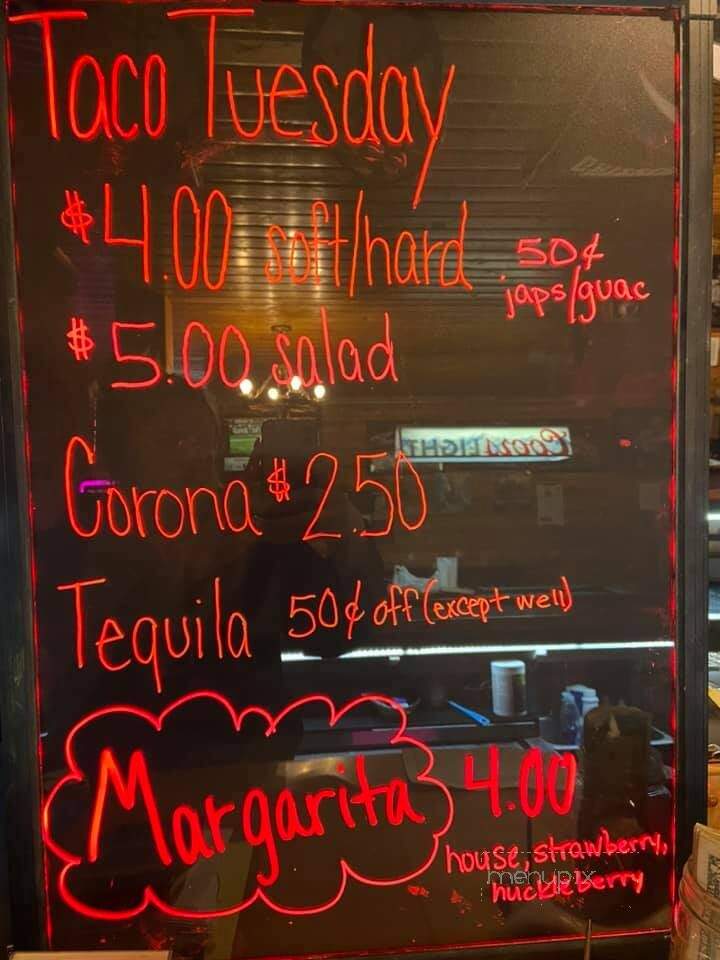 Taco Tuesday
$4.00 soft/hard
50¢
japs/guac
$5.00 salad
Coors LIGHT
Corona $2.50
Tequila 50¢ off (except well)
Margarita 4.00
house, strawberry,
huckleberry
menupix